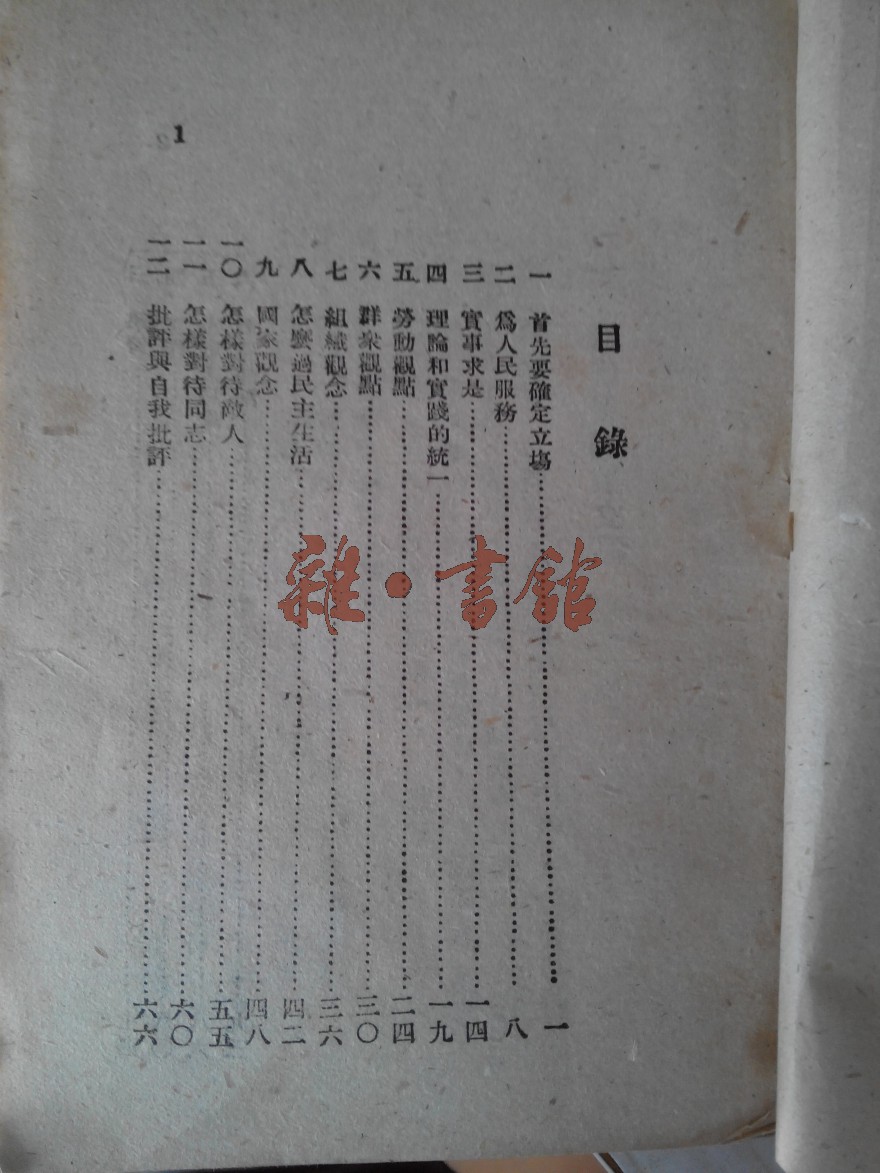 目錄
一 首先要確定立場………一
二 爲人民服務………八
三 實事求是………一四
四 理論和實踐的統一………一九
五 勞動觀點………二四
六 群衆觀點………三〇
七 組織觀念………三六
八 怎麼過民主生活………四二
九 國家觀念………四八
一〇 怎樣對待敵人………五五
一一 怎樣對待同志………六〇
一二 批評與自我批評………六六
1
雜·書館